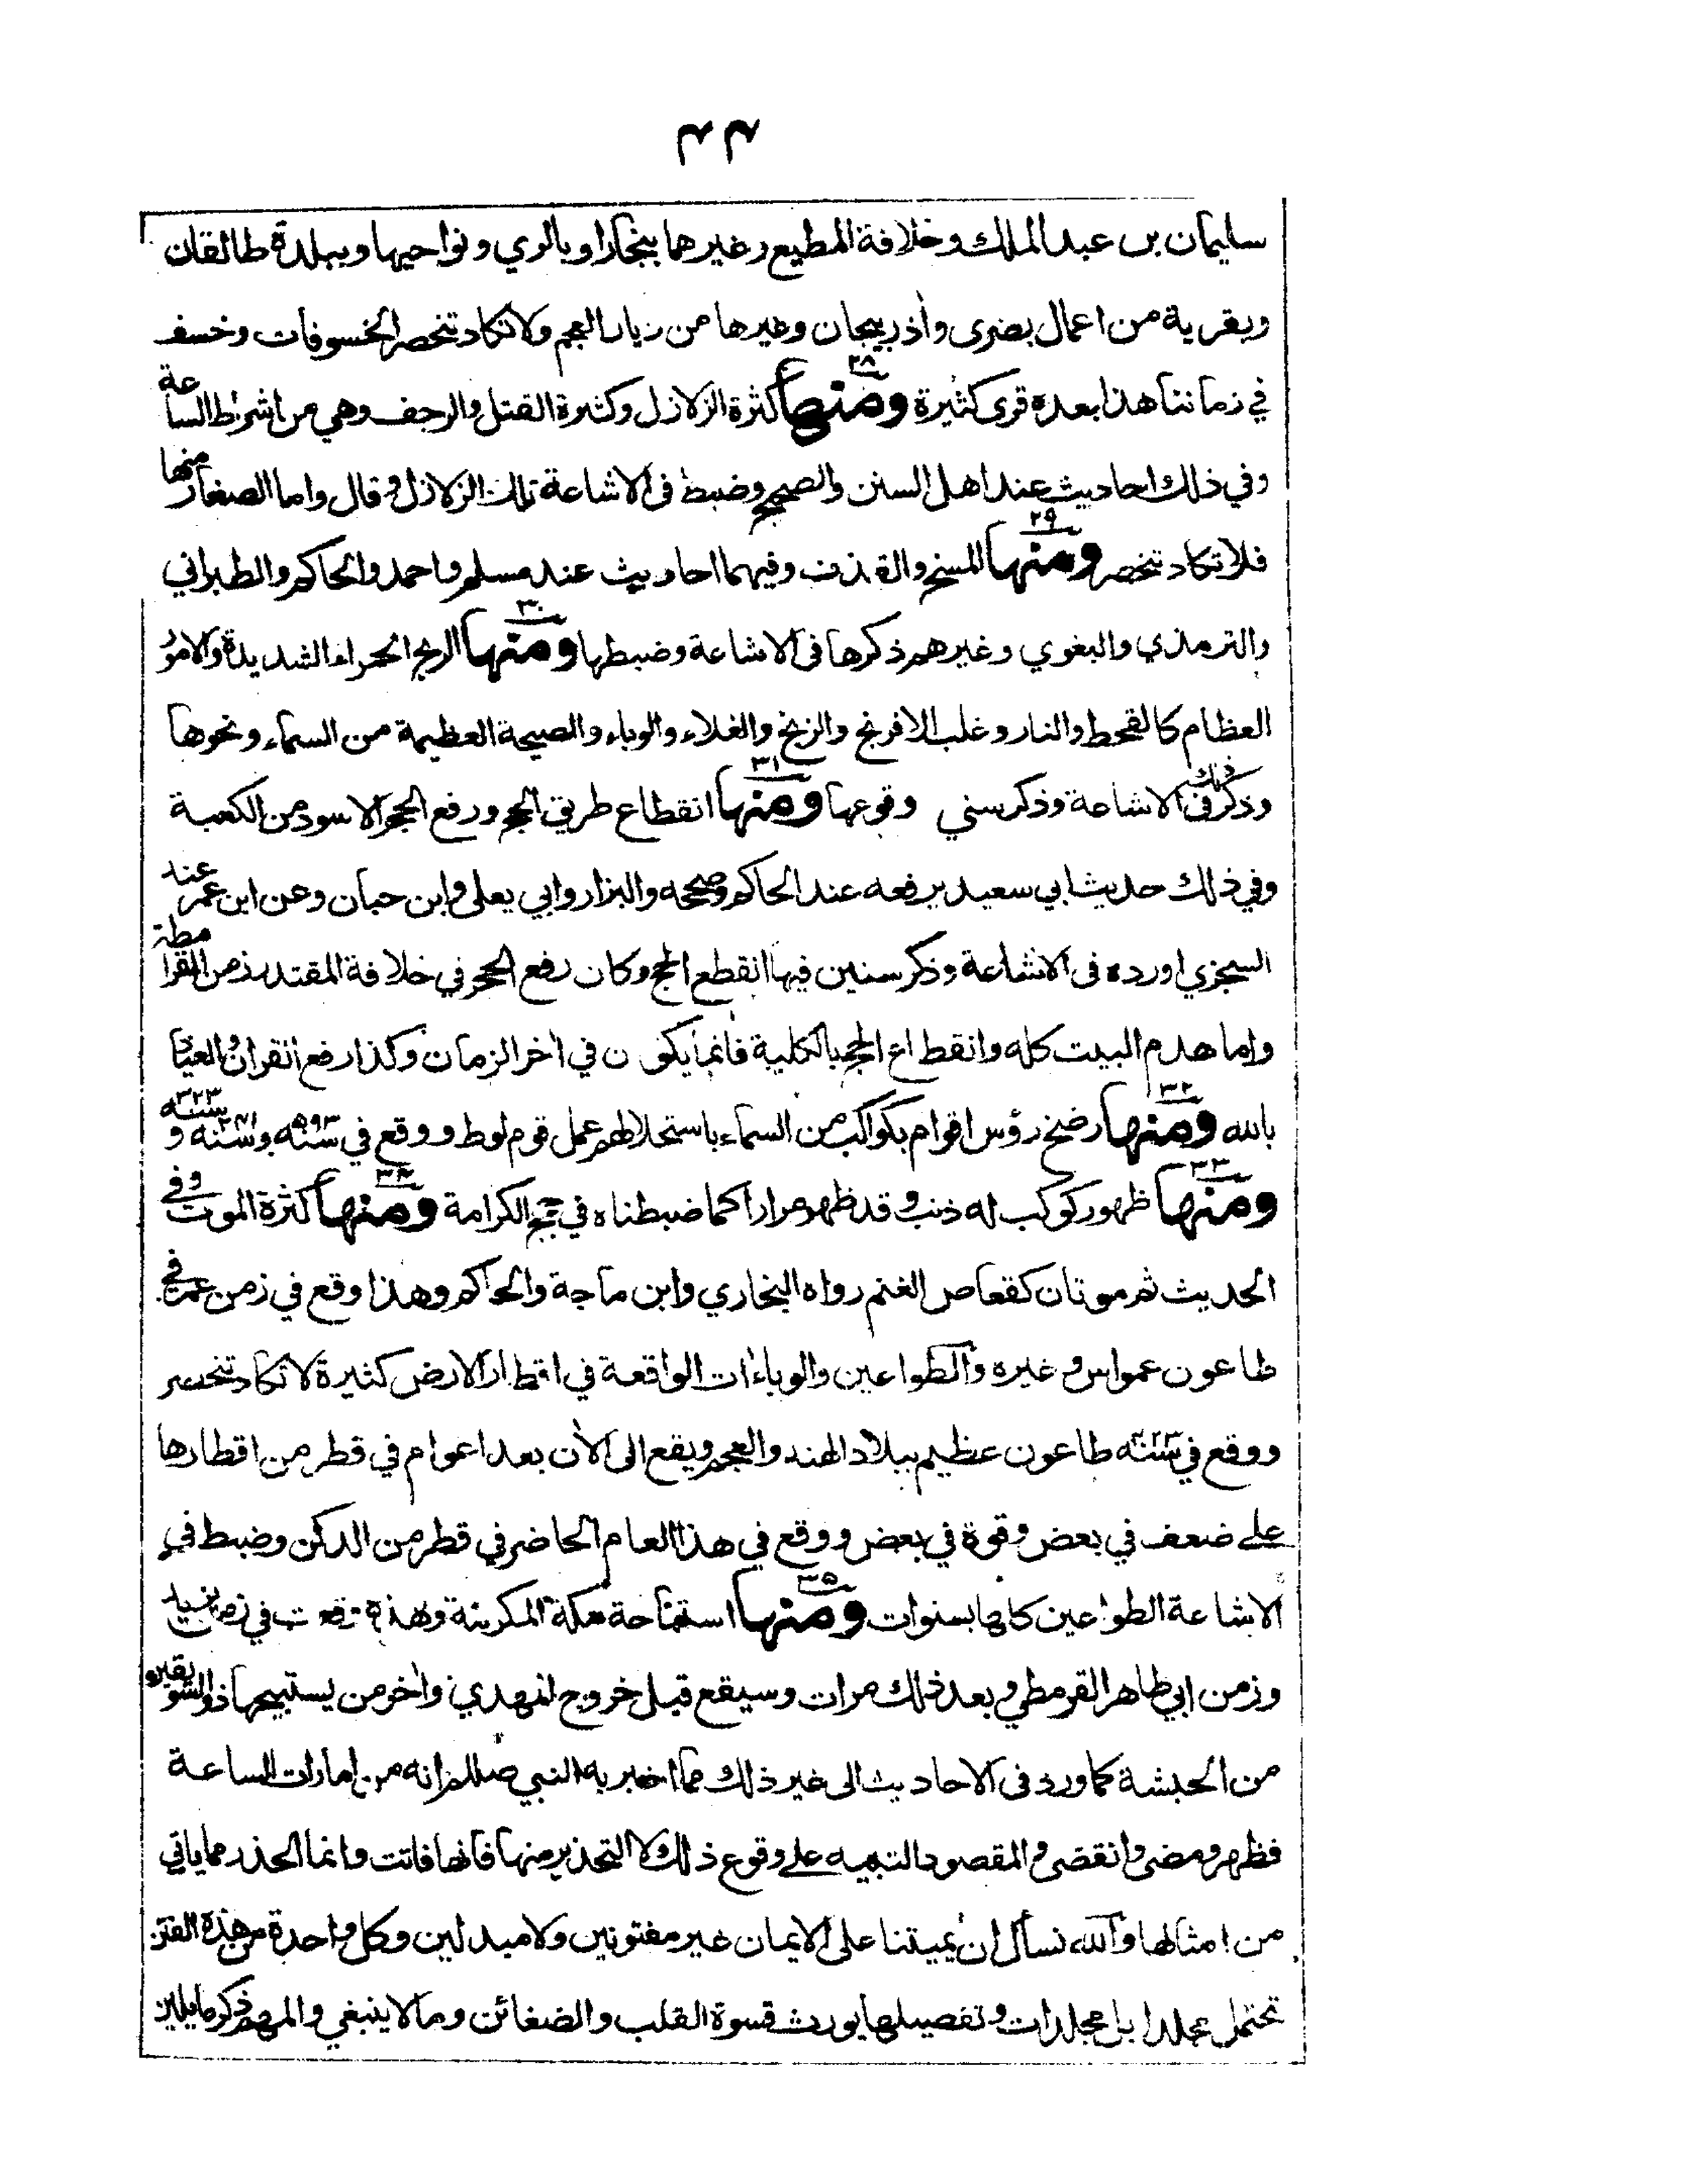 ٤٤
سليمان بن عبد الملك وخلافة المطيع وغيرهما ببخارا وبالري ونواحيها وببلدة طالقان
وبقرية من اعمال بصرى واذربيجان وغيرها من ديار العجم ولا تكاد تنحصر الخسوفات وخسف
في زماننا هذا بعدة قرى كثيرة ومنها ٢٨ كثرة الزلازل وكثرة القتل والرجف وهي من اشراط الساعة
وفي ذلك احاديث عند اهل السنن والصحيح وضبط فى الاشاعة تلك الزلازل وقال واما الصغار منها
فلا تكاد تنحصر ومنها ٢٩ المسخ والقذف وفيهما احاديث عند مسلم واحمد والحاكم والطبراني
والترمذي والبغوي وغيرهم ذكرها فى الاشاعة وضبطها ومنها ٣٠ الريح الحمراء الشديدة والامور
العظام كالقحط والنار وغلب الافرنج والزنج والغلاء والوباء والصيحة العظيمة من السماء ونحوها
وذكر ذلك فى الاشاعة وذكر سني وقوعها ومنها ٣١ انقطاع طريق الحج ورفع الحجر الاسود من الكعبة
وفي ذلك حديث ابي سعيد يرفعه عند الحاكم وصححه والبزار وابي يعلى وابن حبان وعن ابن عمر عند
السجزي اورده فى الاشاعة وذكر سنين فيها انقطع الحج وكان رفع الحجر في خلافة المقتدر زمن القرامطة
واما هدم البيت كله وانقطاع الحج بالكلية فانما يكون في اخر الزمان وكذا رفع القران والعياذ
بالله ومنها ٣٢ رضخ رؤس اقوام بكواكب من السماء باستحلالهم عمل قوم لوط ووقع في سنة ٥٩٣ وسنة وسنة ٣٢٣
ومنها ٣٣ ظهور كوكب له ذنب وقد ظهر مرارا كما ضبطناه في حجج الكرامة ومنها ٣٤ كثرة الموت وفي
الحديث ثم موتان كقعاص الغنم رواه البخاري وابن ماجة والحاكم وهذا وقع في زمن عمر في
طاعون عمواس وغيره والطواعين والوباءات الواقعة في اقطار الارض كثيرة لا تكاد تنحصر
ووقع في سنة طاعون عظيم ببلاد الهند والعجم ويقع الى الان بعد اعوام في قطر من اقطارها
على ضعف في بعض وقوة في بعض ووقع في هذا العام الحاضر في قطر من الدكن وضبط في
الاشاعة الطواعين كلها بسنوات ومنها ٣٥ استباحة مكة المكرمة وهذه وقعت في زمن يزيد
وزمن ابي طاهر القرمطي وبعد ذلك مرات وسيقع قبل خروج المهدي واخر من يستبيحها ذو السويقين
من الحبشة كما ورد فى الاحاديث الى غير ذلك مما اخبر به النبي صللم انه من امارات الساعة
فظهر ومضى وانقضى والمقصود التنبيه على وقوع ذلك لا التحذير منها فانها فاتت وانما الحذر مما ياتي
من امثالها والله نسأل ان يميتنا على الايمان غير مفتونين ولا مبدلين وكل واحدة من هذة الفتن
تحتمل مجلدا بل مجلدات وتفصيلها يورث قسوة القلب والضغائن وما لا ينبغي والمهم ذكر ما يلين